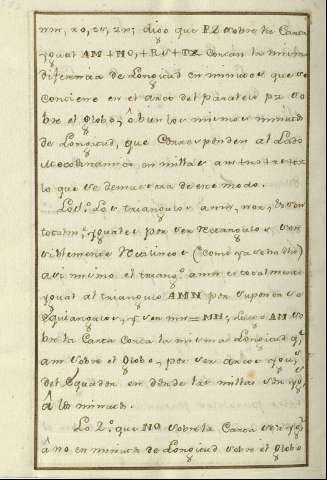 mn, no, os, zn; digo que PZ sobre la Carta
ygual AM + NO, + RS + TX contan la misma
diferencia de Longitud en minutos que se
contiene en el Arco del paralelo pz so
bre el globo, ô bien los mismos minutos
de Longitud, que corresponden al Lado
Mecodinamico en millas am + no + rs + tx
lo que se demuestra de este modo.
Lo 1.º Los triangulos amn, nor,
totalm.te yguales por ser Rectangulos y sen
siblemente Rectilineos (como ya se ha dho)
asi mismo el triang.º amn es totalmente
ygual al triangulo AMN por suponerse
Equiangulos, y ser mn = MN, luego AM so
bre la Carta Conta la misma Longitud q.e
am sobre el Globo, por ser arcos yg.s
del Equador en donde las millas son yg.s
â los minutos.
Lo 2.º que NO sobre la Carta es yg.l
â no en minutos de Longitud sobre el globo